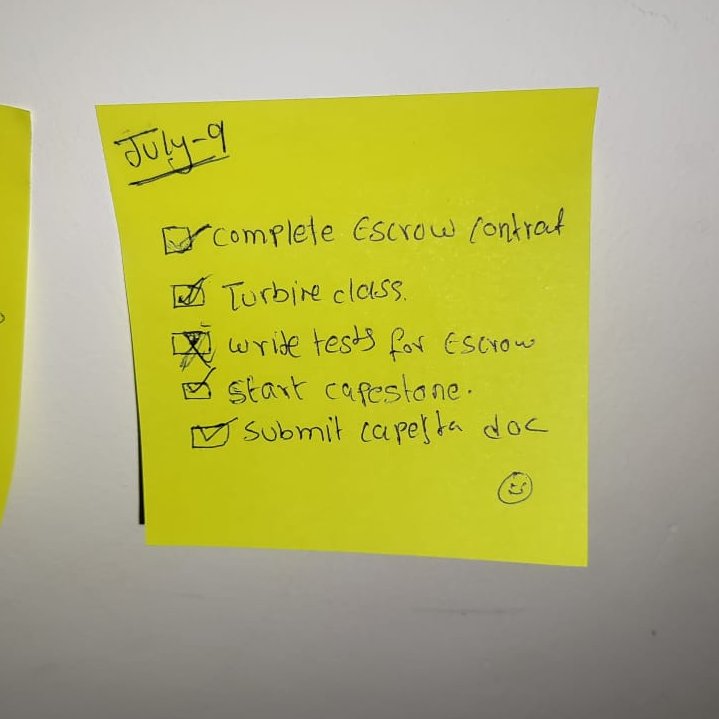 July-9
complete Escrow contrat
Turbine class.
write tests for Escrow
start capestone.
submit capesta doc